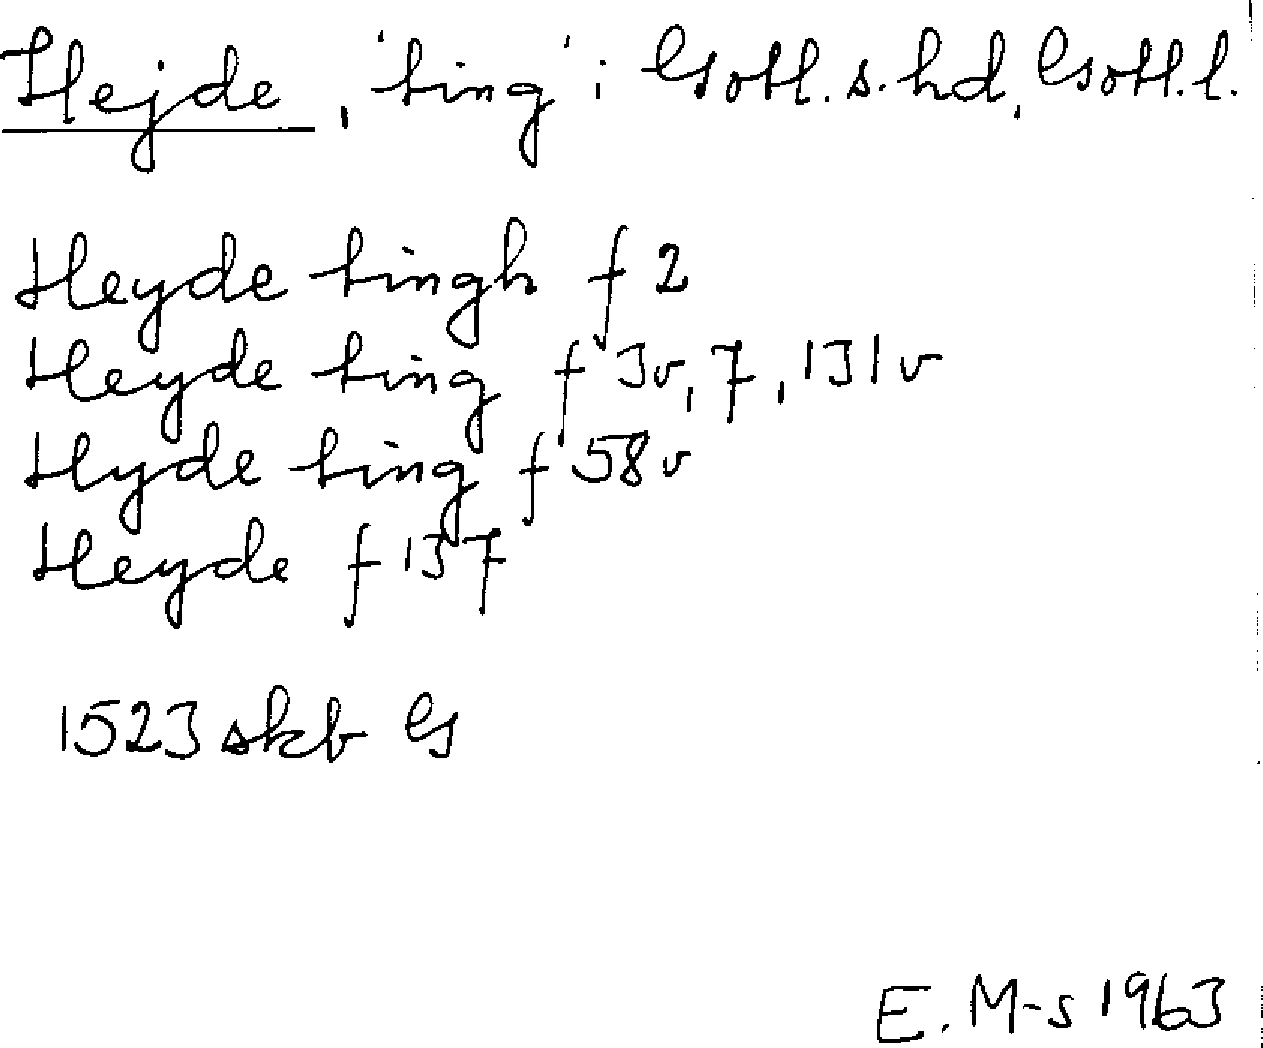 Hejde, 'ting'; Gotl. s. hd, Gotl. l.
Heyde tingh f 2
Heyde ting f 3v, 7, 131v
Hyde ting f 58v
Heyde f 137
1523 skb G
E. M-s 1963